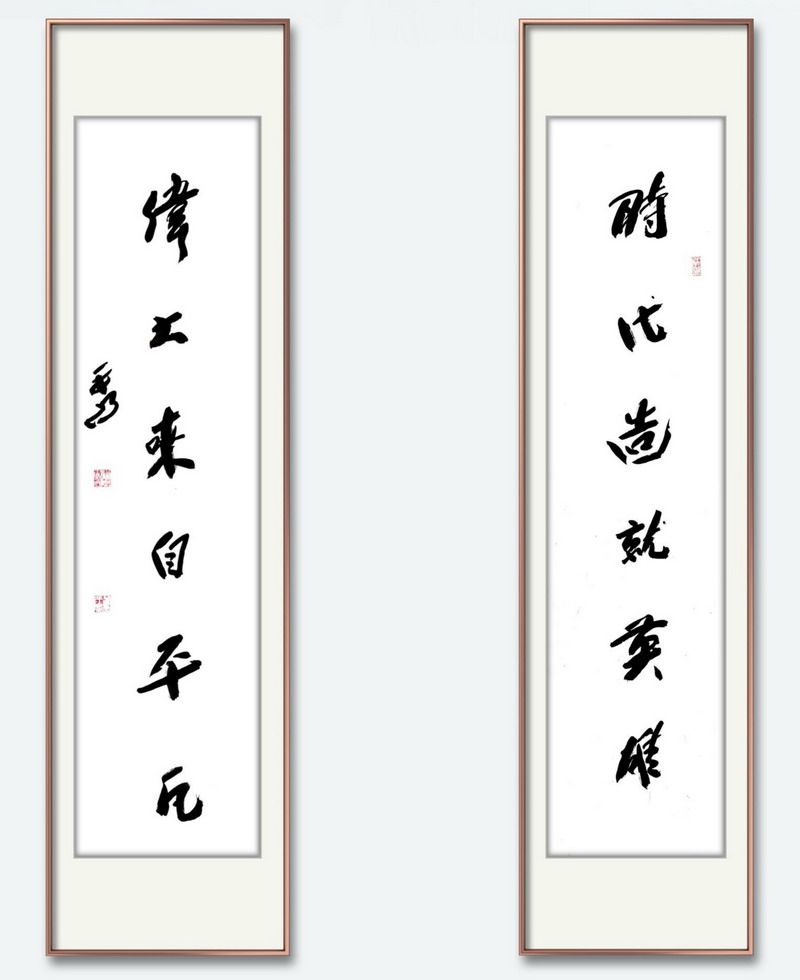 時代造就英雄
偉大來自平凡